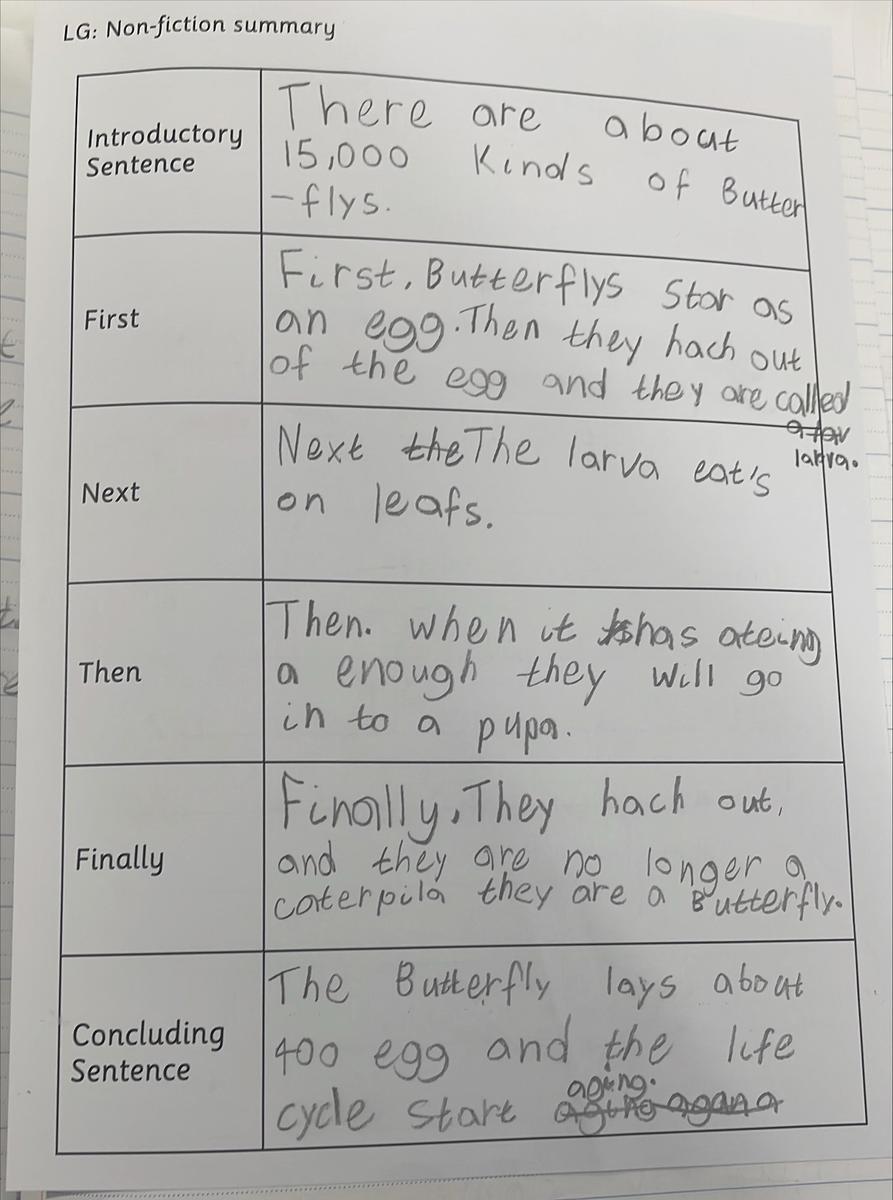 LG: Non-fiction summary
Introductory
Sentence
There are about
15,000 kinds of Butter
-flys.
First
First, Butterflys star as
an egg. Then they hach out
of the egg and they are called
larva.
Next
Next the The larva eat's
on leafs.
Then
Then. when it has ateing
a enough they will go
in to a pupa.
Finally
Finally, They hach out,
and they are no longer a
caterpila they are a Butterfly.
Concluding
Sentence
The Butterfly lays about
400 egg and the life
aging.
cycle start